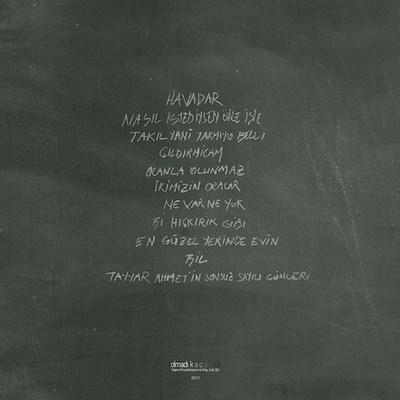 HAVADAR
NASIL İSTEDİYSEN ÖYLE İŞLE
TAKIL YANİ TAKMIYO BELLİ
ÇILDIRMICAM
OLANLA OLUNMAZ
İKİMİZİN ORALAR
NE VAR NE YOK
Bİ HIÇKIRIK GİBİ
EN GÜZEL YERİNDE EVİN
BİL
TAYYAR AHMET'İN SONSUZ SAYILI GÜNLERİ
olmadı kaçarız
2017